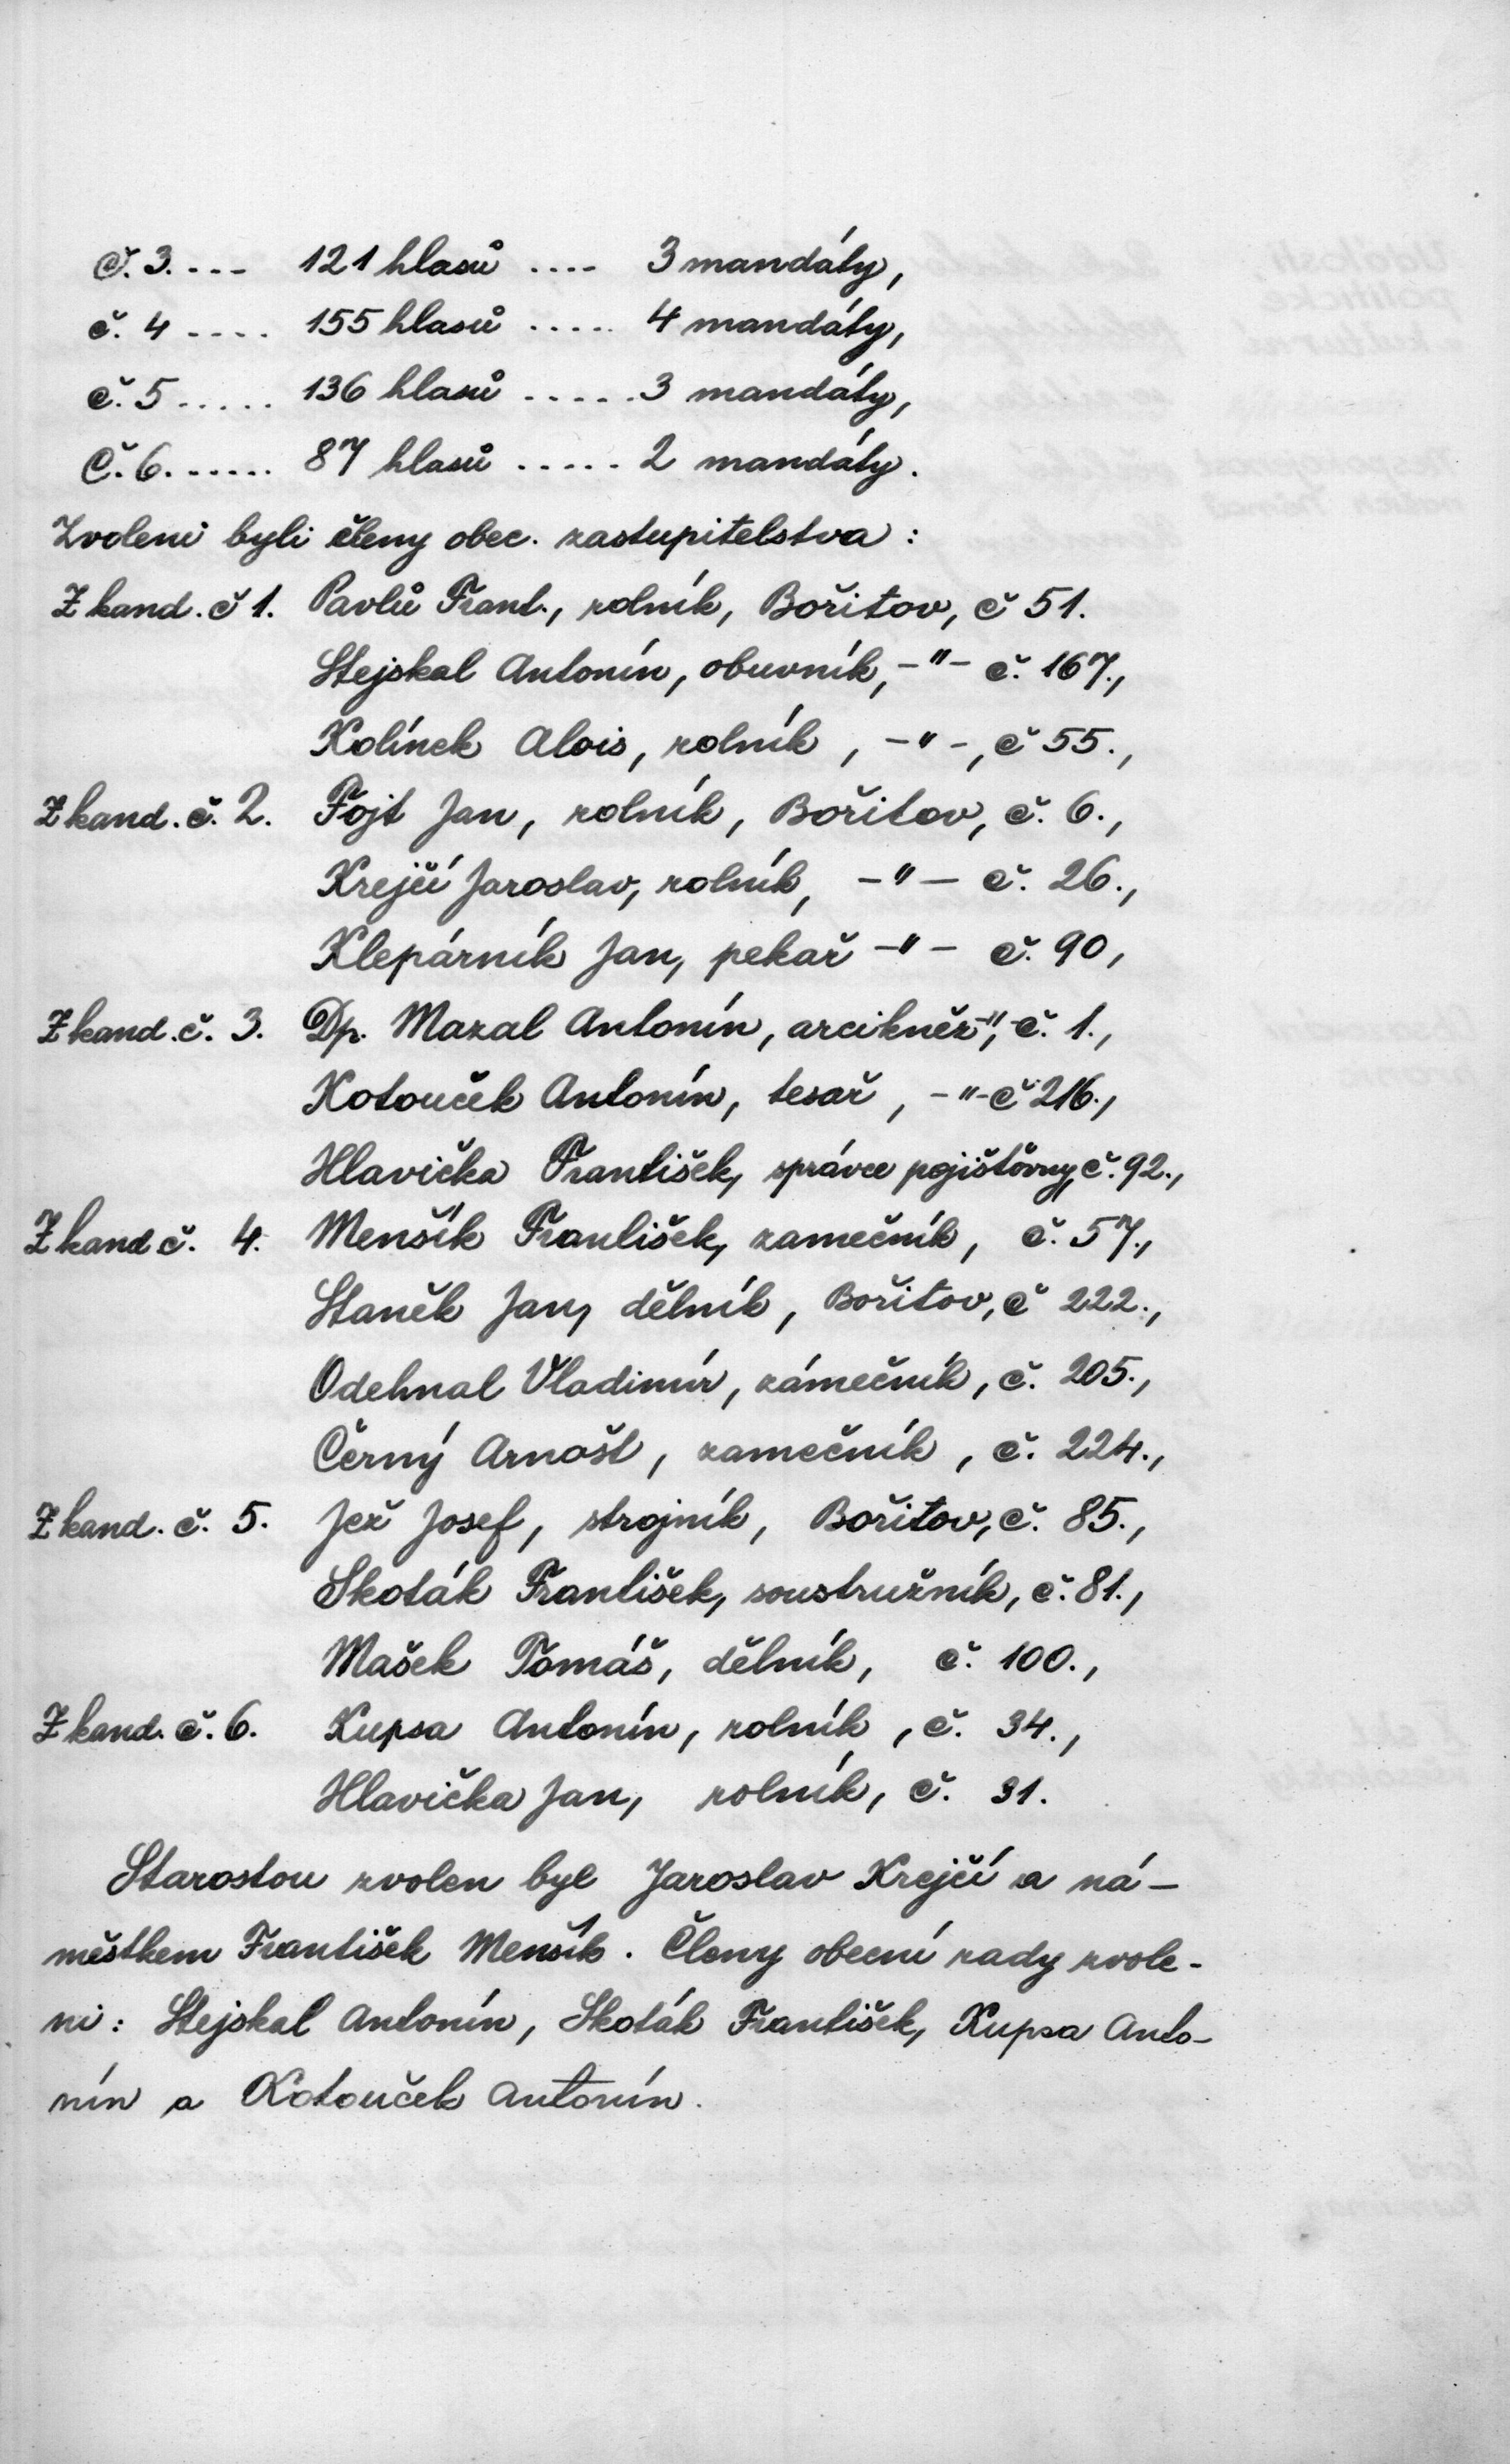 Č. 3. --- 121 hlasů .... 3 mandáty,
č. 4 .... 155 hlasů ..... 4 mandáty,
č. 5 ..... 136 hlasů ..... 3 mandáty,
Č. 6. ..... 87 hlasů ..... 2 mandáty.
Zvoleni byli členy obec. zastupitelstva :
Z kand. č 1. Pavlů Frant., rolník, Bořitov, č 51.
Stejskal Antonín, obuvník, -"- č. 167.,
Kolínek Alois, rolník , -"-, č 55.,
Z kand. č. 2. Fojt Jan, rolník, Bořitov, č. 6.,
Krejčí Jaroslav, rolník, -"- č. 26.,
Klepárník Jan, pekař -"- č. 90,
Z kand. č. 3. Dp. Mazal Antonín, arcikněz -"-, č. 1.,
Kotouček Antonín, tesař , -"- č 216.,
Hlavička František, správce pojišťovny, č. 92.,
Z kand č. 4. Menšík František, zamečník, č. 57.,
Staněk Jan, dělník, Bořitov, č 222.,
Odehnal Vladimír, zámečník, č. 205.,
Černý Arnošt, zamečník , č. 224.,
Z kand. č. 5. Jež Josef, strojník, Bořitov, č. 85.,
Skoták František, soustružník, č. 81.,
Mašek Tomáš, dělník, č. 100.,
Z kand. č. 6. Kupsa Antonín, rolník , č. 34.,
Hlavička Jan, rolník, č. 31.
Starostou zvolen byl Jaroslav Krejčí a ná-
městkem František Menšík. Členy obecní rady zvole-
ni: Stejskal Antonín, Skoták František, Kupsa Anto-
nín a Kotouček Antonín.